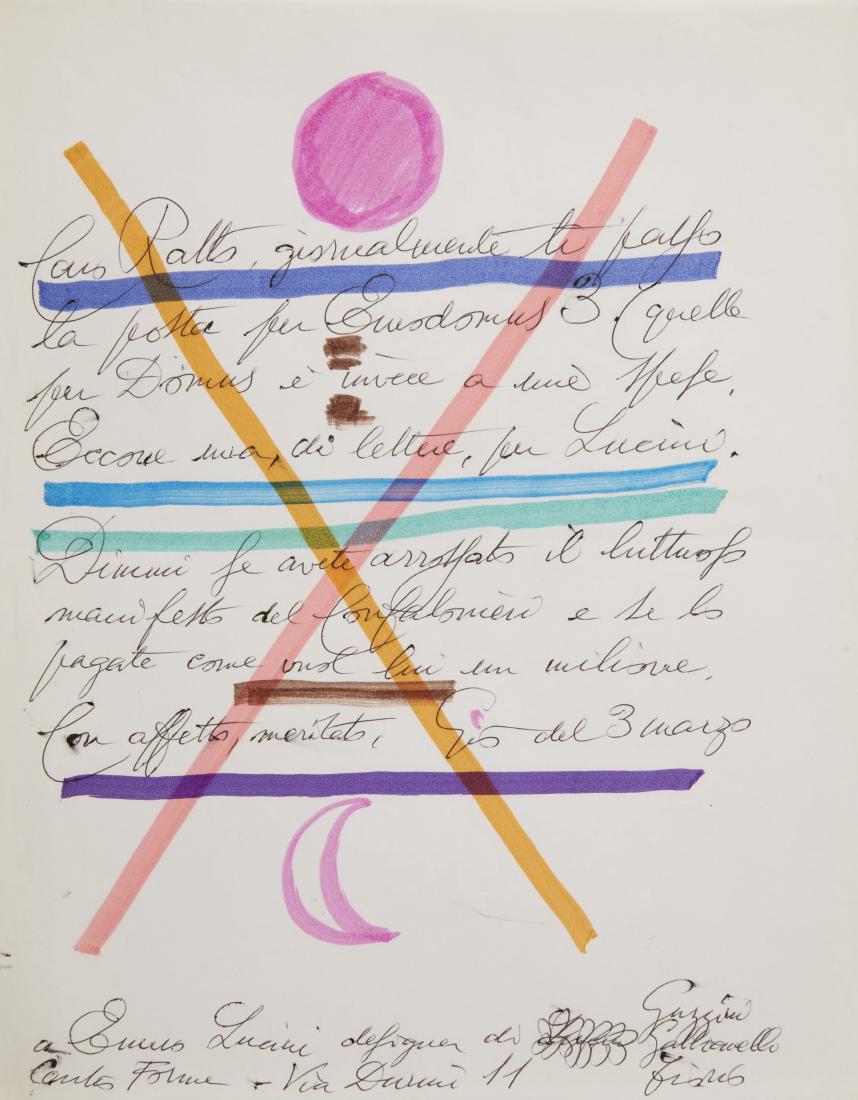 Caro Ratto, giornalmente ti passo
la posta per Eurodomus 3. (quelle
per Domus è invece a mie spese.
Eccone una, di lettere, per Lucini.
Dimmi se avete arrossato il luttuoso
manifesto del Confalonieri e se lo
pagate come vuol lui un milione.
Con affetto, meritato, Giò del 3 marzo
a Ennio Lucini designer di Guzzini
Gallianello
Centro Forme - Via Durini 11